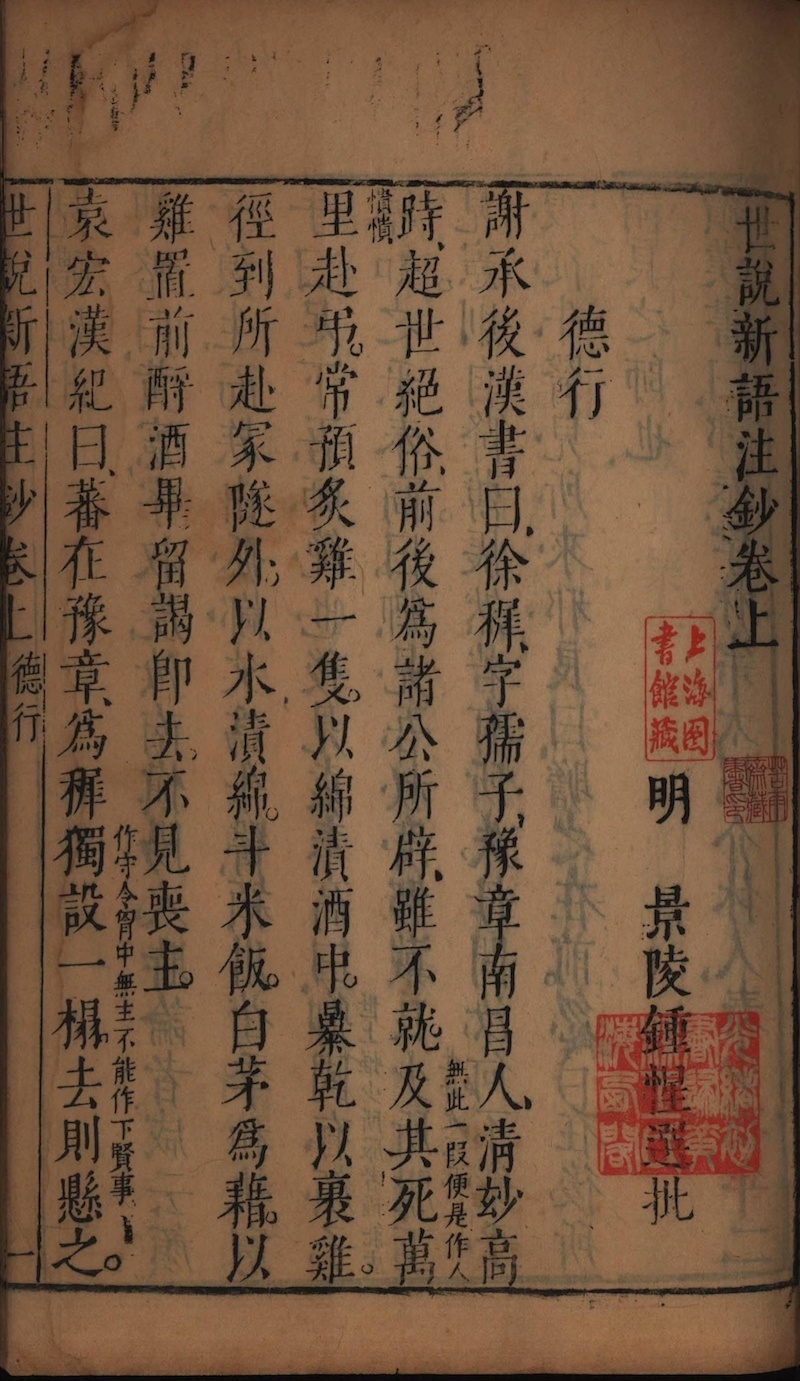 世說新語注鈔卷上
明 景陵鍾惺選批
上海图書館藏
德行
謝承後漢書曰徐穉字孺子豫章南昌人清妙高
無此一段便是作人
時超世絕俗前後爲諸公所辟雖不就及其死萬
憒憒
里赴弔常預炙雞一隻以綿漬酒中㬥乾以裹雞
徑到所赴冢隧外以水漬綿斗米飯白茅爲藉以
雞置前酹酒畢留謁即去不見喪主
作守令胷中無主不能作下賢事
袁宏漢紀曰蕃在豫章爲穉獨設一榻去則懸之
世說新語注鈔卷上 德行 一